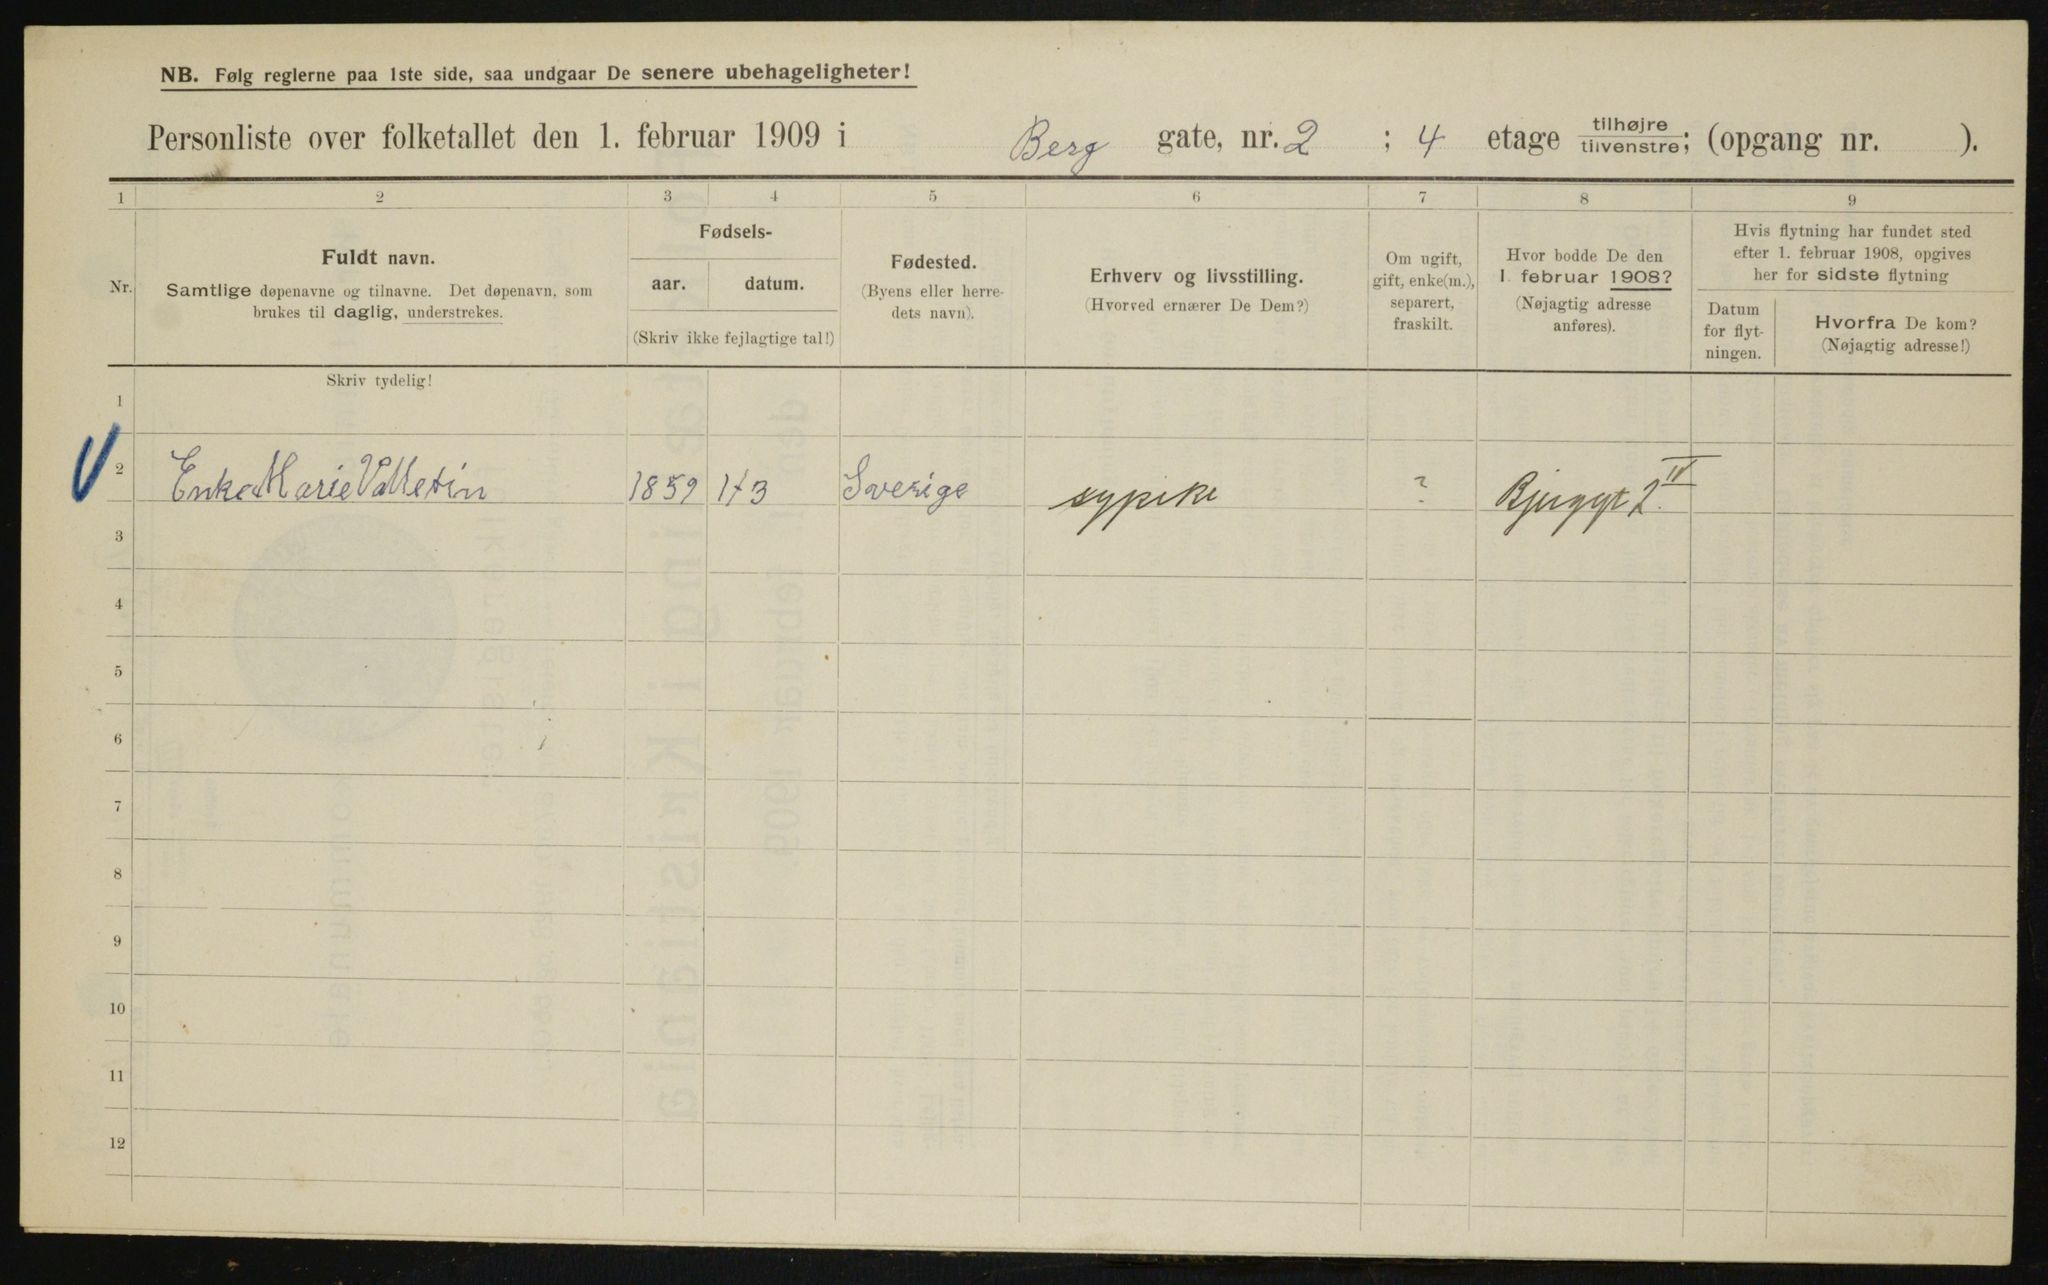 NB. Følg reglerne paa 1ste side, saa undgaar De senere ubehageligheter!
Personliste over folketallet den 1. februar 1909 i Berg gate, nr. 2 ; 4 etage tilhøjre tilvenstre; (opgang nr. ).
1 2 3 4 5 6 7 8 9
Nr.
Fuldt navn.
Samtlige døpenavne og tilnavne. Det døpenavn, som
brukes til daglig, understrekes.
Fødsels-
aar. datum.
(Skriv ikke fejlagtige tal!)
Fødested.
(Byens eller herre-
dets navn).
Erhverv og livsstilling.
(Hvorved ernærer De Dem?)
Om ugift,
gift, enke(m.),
separert,
fraskilt.
Hvor bodde De den
1. februar 1908?
(Nøjagtig adresse
anføres).
Hvis flytning har fundet sted
efter 1. februar 1908, opgives
her for sidste flytning
Datum
for flyt-
ningen.
Hvorfra De kom?
(Nøjagtig adresse!)
Skriv tydelig!
1
2 Enke Marie Valletin 1859 Sverige sypike ? 2 IV
3
4
5
6
7
8
9
10
11
12